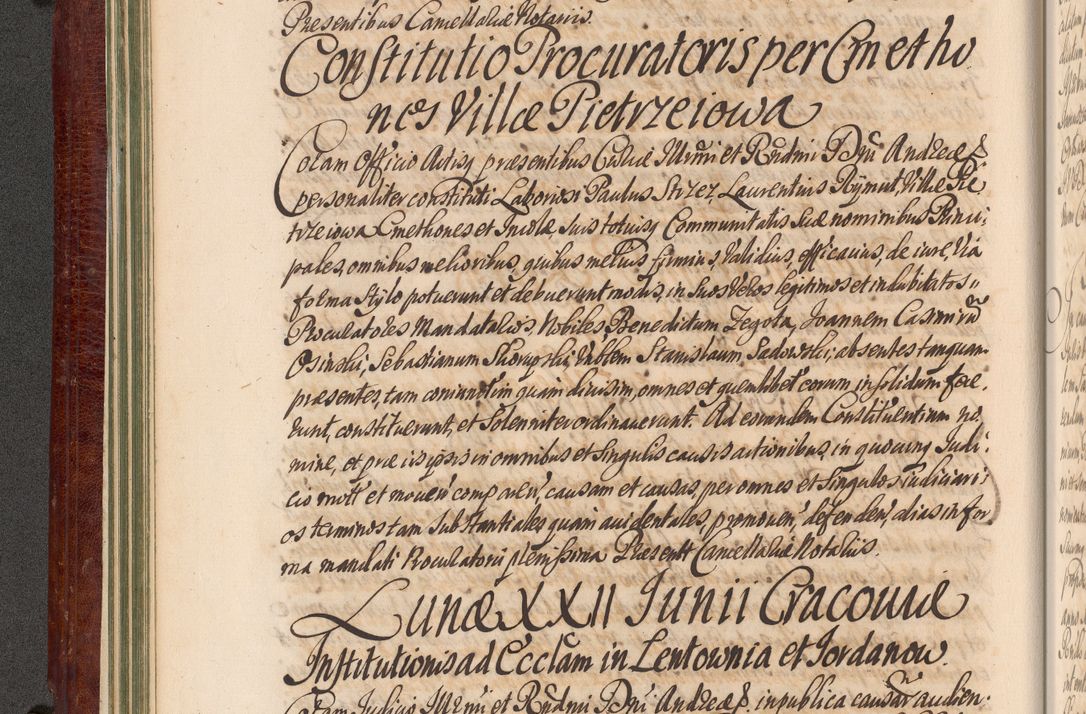 Presentibus Cancellariæ Notariis.
Constitutio Procuratoris per Cmetho
nes Villæ Pietrzeiowa
Coram Officio Actisq præsentibus Curiæ Illrmi et Rndmi Dni Andreæ &
personaliter constituti Laboriosi Paulus Strzez, Laurentius Rymut, Villæ Pie
trzeiowa Cmethones et Incolæ suis totiusq Communitatis suæ nominibus Princi:
pales, omnibus melioribus, quibus melius firmius, validius, efficacius, de iure, via
forma stylo potuerunt et debuerunt modis, in suos veros legitimos et indubitatos
Procuratores Mandatarios, Nobiles Benedictum Zegota, Joannem Casimirum
Osinski, Sebastianum Skorupski, Stanislaum Sadowski; absentes tanquam
præsentes, tam coniunctim quam divisim, omnes et quemlibet eorum in solidum fece.
runt, constituerunt, et solenniter ordinaverunt. Ad eorundem Constituentium no.
mine, et pro iis ipsis in omnibus et singulis causis actionibus, in quocunq Judi:
cio mott et moven comparen, causam et causas, per omnes et singulos iudiciari:
os terminos tam substantiales quam accidentales, promoven, defenden, alias in for
ma mandati Procuratorii plenissima Present Cancellariæ Notariis.
Lunæ XXII Junii Cracoviæ
Institutionis ad Ecclam in Lentownia et Jordanow.
Coram Judicio Illrmi et Rndmi Dni Andreæ & in publica causar audien: